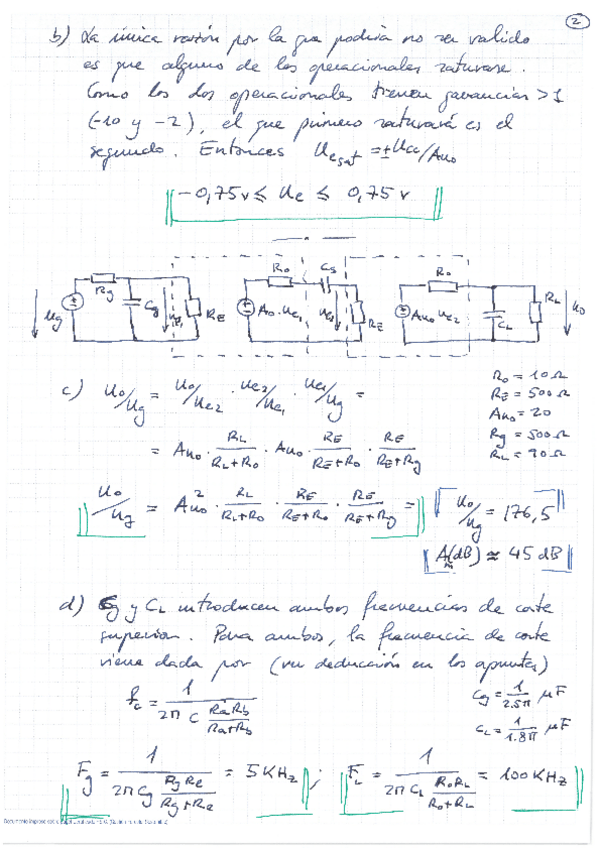 2
b) La única razón por la que podría no ser valido
es que alguno de los operacionales saturase.
Como los dos operacionales tienen ganancias >1
(-10 y -2), el que primero saturará es el
segundo. Entonces Ue sat = ±Ucc/Auo
-0,75v ≤ Ue ≤ 0,75 v
Rg Cg Ug Ue1 RE Ro Cs Auo·Ue1 Ue2 RE Ro Auo Ue2 CL RL Uo
c) Uo/Ug = Uo/Ue2 · Ue2/Ue1 · Ue1/Ug =
Ro = 10 Ω
RE = 500 Ω
Auo = 20
Rg = 500 Ω
RL = 90 Ω
= Auo · RL/(RL+Ro) · Auo · RE/(RE+Ro) · RE/(RE+Rg)
Uo/Ug = Auo² · RL/(RL+Ro) · RE/(RE+Ro) · RE/(RE+Rg) = Uo/Ug = 176,5
A(dB) ≈ 45 dB
d) Cg y CL introducen ambos frecuencias de corte
superior. Para ambos, la frecuencia de corte
viene dada por (ver deducción en los apuntes)
fc = 1/(2π C RaRb/(Ra+Rb))
Cg = 1/2.5π μF
CL = 1/1.8π μF
Fg = 1/(2π Cg RgRe/(Rg+Re)) = 5 KHz ; FL = 1/(2π CL RoRL/(Ro+RL)) = 100 KHz